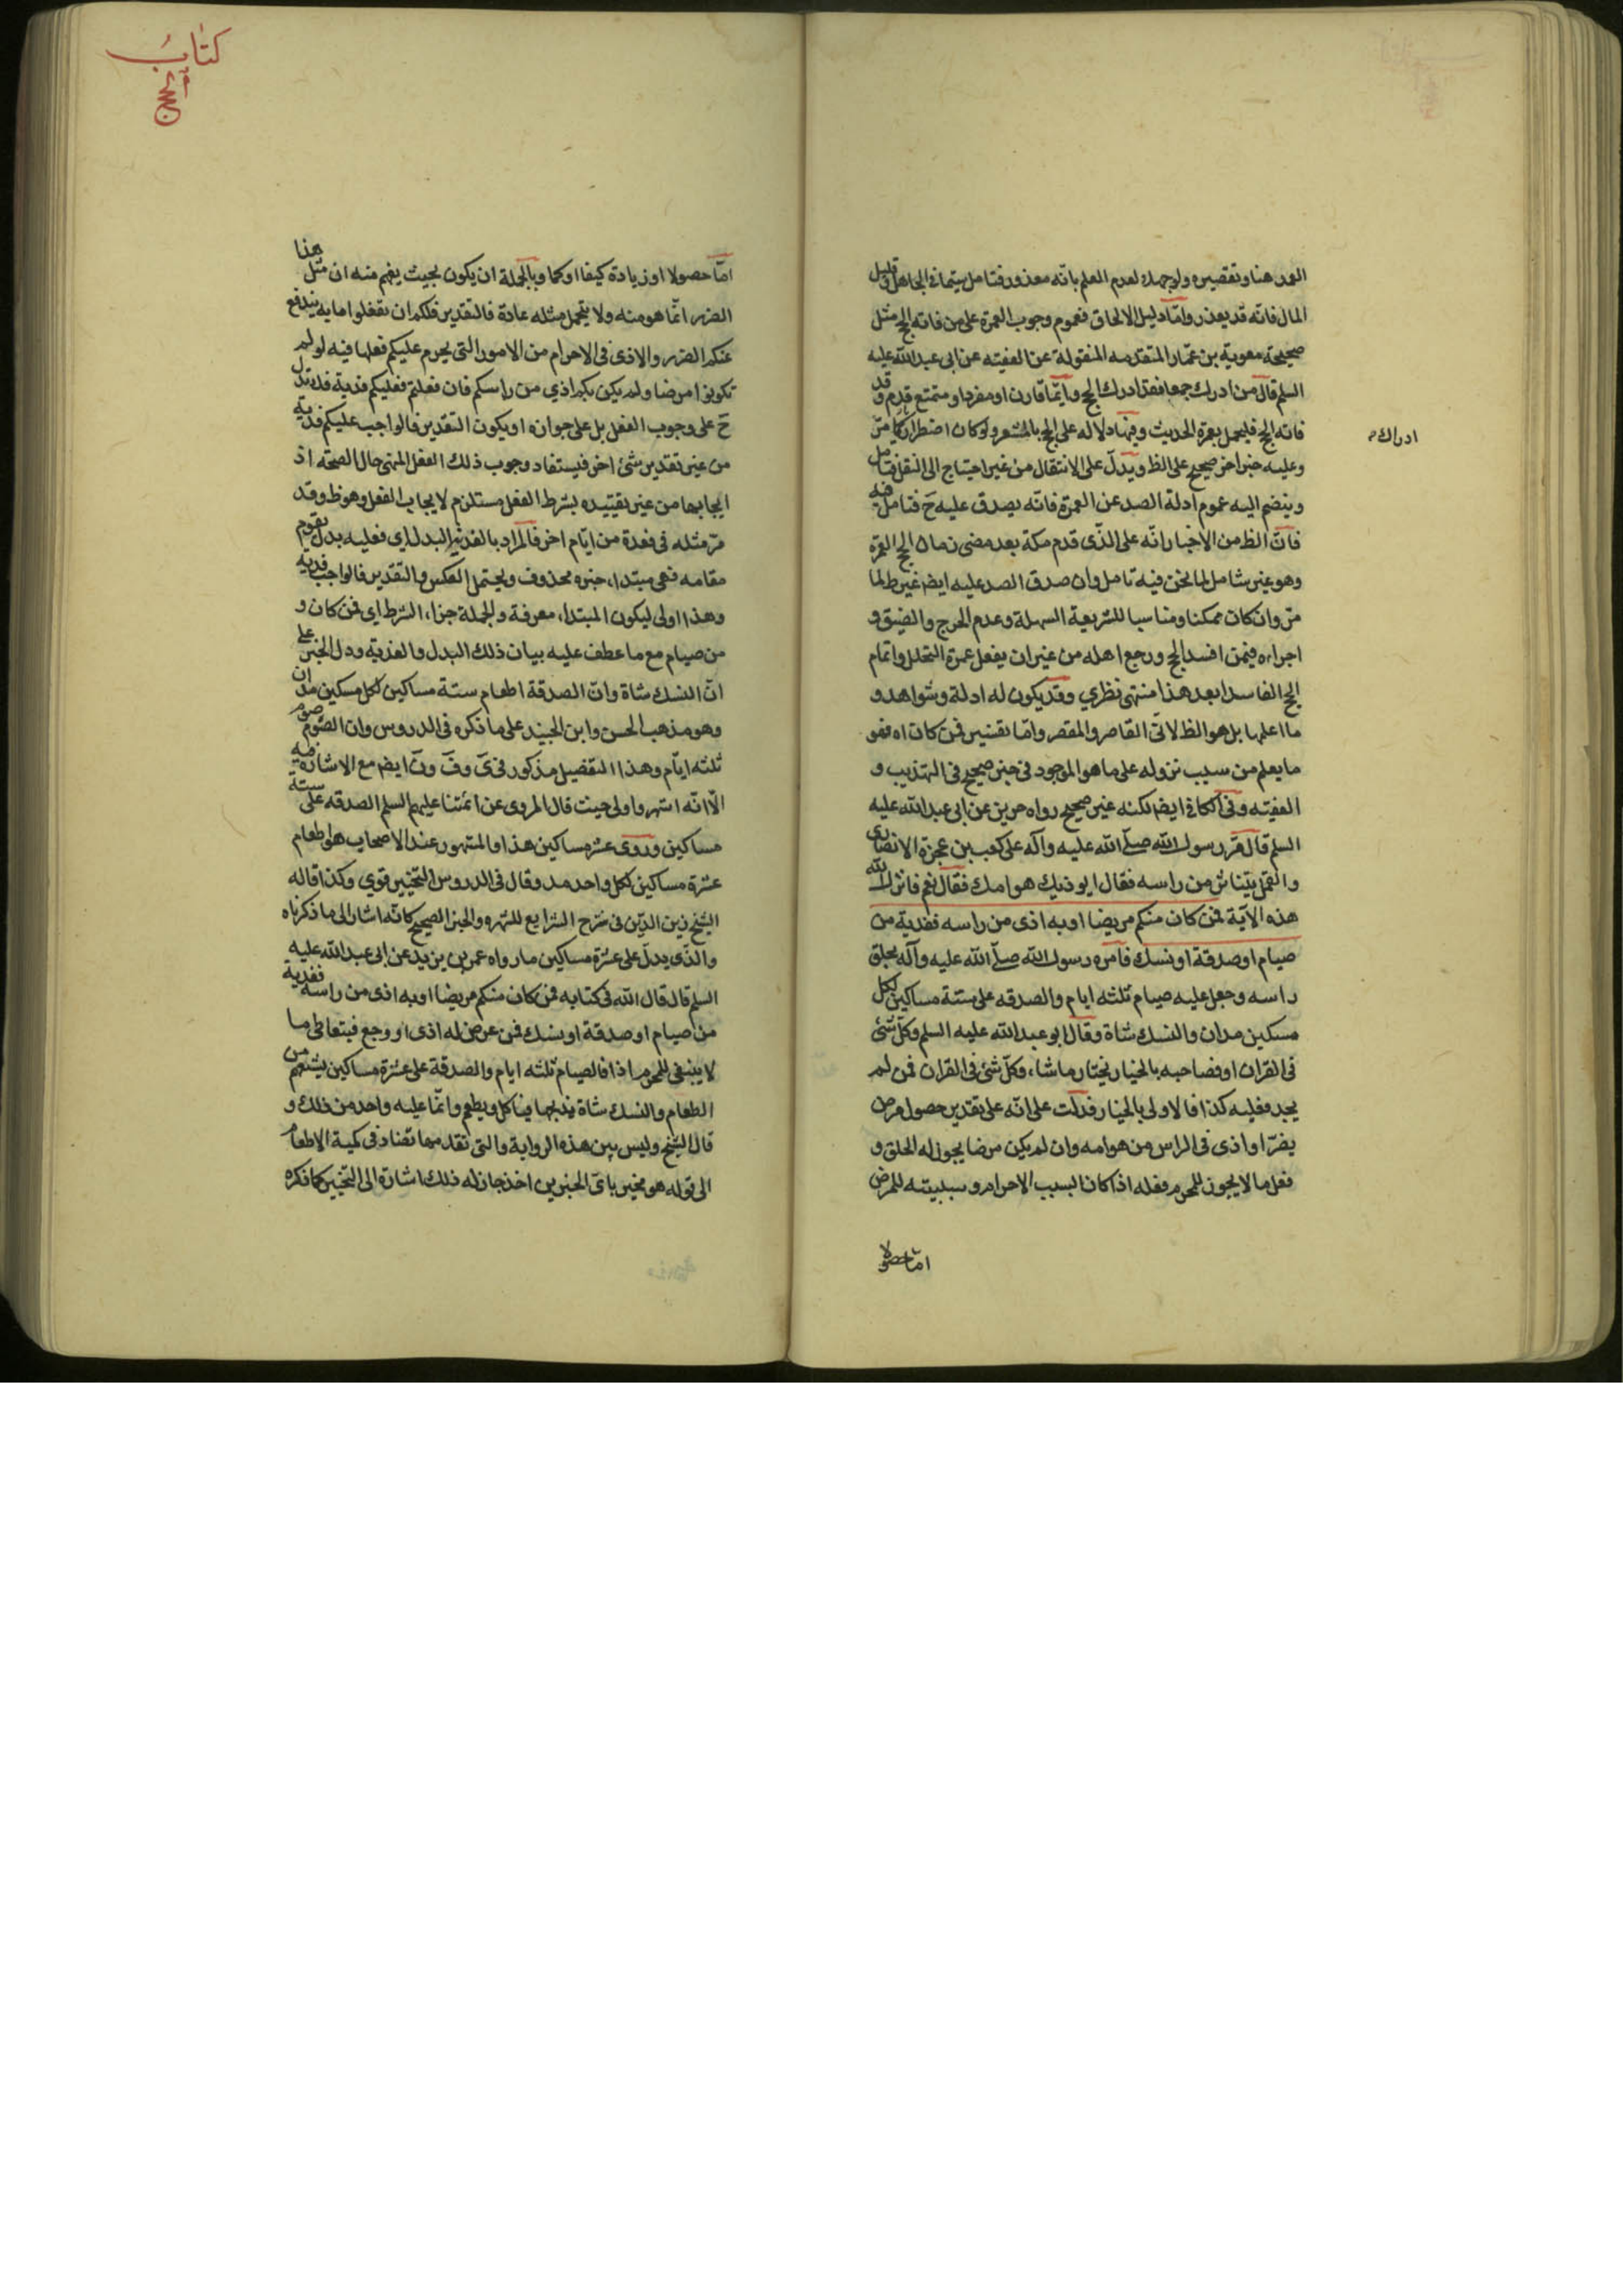 العذر هنا وتقصيره ولو جهلا لعدم العلم بانّه معذور فتامل سيّما في الجاهل قليل
المال فانّه قد يعذر وامّا دليل الالحاق فعموم وجوب العمرة على من فاته الحج مثل
صحيحة معوية بن عمّار المتقدمه المنقولة عن الفقيه عن ابى عبد اللّه عليه
السلم قال من ادرك جمعا فقد ادرك الحج وايّما قارن او مفرد او متمتع قدم وقد
فاته الحج فليحل بعمرة الحديث وفيها دلاله على الحج بالمشعر ولو كان اضطراريا كما مرّ
ادراك
وعليه خبر اخر صحيح على الظ ويدلّ على الانتقال من غير احتياج الى النقل فتامل
وينضم اليه عموم ادلة الصد عن العمرة فانّه يصدق عليه حَ فتامل فيه
فانّ الظ من الاخبار انّه على الذّى قدم مكة بعد مضى زمان الحج العمرة
وهو غير شامل لما نحن فيه تامل وان صدق الصد عليه ايضا غير ظ لما
مرّ وان كان ممكنا ومناسبا للشريعة السهلة وعدم الحرج والضيق و
اجراءه فيمن افسد الحج ورجع اهله من غير ان يفعل عمرة التحلل واتمام
الحج الفاسد ابعد هذا منتهى نظري وقد يكون له ادلة وشواهد و
ما اعلمها بل هو الظ لانّى القاصر والمقصر وامّا تفسير فمن كان اه فهو
ما يعلم من سبب نزوله على ما هو الموجود فى خبر صحيح فى التهذيب و
الفقيه وفى الكافى ايضا لكنه غير صحيح رواه حريز عن ابى عبد اللّه عليه
السلم قال مرّ رسول اللّه صلّى اللّه عليه وآله على كعب بن عجرة الانصارى
والقمل يتناثر من راسه فقال ايوذيك هوامك فقال نعم فانزل اللّه
هذه الاية فمن كان منكم مريضا او به اذى من راسه ففدية من
صيام او صدقة او نسك فامره رسول اللّه صلّى اللّه عليه وآله بحلق
راسه وجعل عليه صيام ثلثه ايام والصدقه على ستة مساكين لكل
مسكين مدان والنسك شاة وقال ابو عبد اللّه عليه السلم وكلّ شئ
فى القران او فصاحبه بالخيار يختار ما شاء، وكلّ شئ فى القران فمن لم
يجد فعليه كذا فالاولى بالخيار فدلّت على انّه على تقدير حصول مرض
يضرّ او اذى فى الراس من هوامه وان لم يكن مرضا يجوز له الحلق و
فعل ما لا يجوز للمحرم فعله اذا كان بسبب الاحرام وسببيته للمرض
امّا حصولا
كتابُ
الحج
امّا حصولا او زيادة كيفا او كما وبالجملة ان يكون بحيث يفهم منه ان مثل هذا
الضرر انّما هو منه ولا يتحمل مثله عادة فالتقدير فلكم ان تفعلوا ما به يندفع
عنكم الضرر والاذى فى الاحرام من الامور التى يحرم عليكم فعلها فيه لو لم
تكونوا مرضا ولم يكن بكم اذي من راسكم فان فعلتم فعليكم فدية فلا تدل
حَ على وجوب الفعل بل على جوازه او يكون التقدير فالواجب عليكم فدية
من غير تقدير شئ اخر فيستفاد وجوب ذلك الفعل المنهى حال الصحّة اذ
ايجابها من غير تقييده بشرط الفعل مستلزم لايجاب الفعل وهو ظ وقد
مرّ مثله فى فعدة من ايّام اخر فالمراد بالفدية البدل اي فعليه بدل يقوم
مقامه فهى مبتدا، خبره محذوف ويحتمل العكس والتقدير فالواجب فدية
وهذا اولى ليكون المبتدا، معرفة والجملة جزا، الشرط اي فمن كان و
من صيام مع ما عطف عليه بيان ذلك البدل والفدية ودل الخبر على
انّ النسك شاة وانّ الصدقة اطعام ستة مساكين لكل مسكين مدان
وهو مذهب الحسن وابن الجنيد على ما ذكره فى الدروس وان الصّوم صوم
ثلثه ايّام وهذا التفصيل مذكور فى ىَ وفَ ونَ ايضا مع الاشارة فيه
الّا انّه اشهر واولى حيث قال المروى عن ائمّتنا عليهم السلم الصدقه على ستة
مساكين وروى عشره مساكين هذا والمشهور عند الاصحاب هو اطعام
عشرة مساكين لكل واحد مد وقال فى الدروس التخيير قوي وكذا قاله
الشيخ زين الدّين فى شرح الشرايع للشهره والخبر الصحيح كانّه اشار الى ما ذكرناه
والذّى يدلّ على عشرة مساكين ما رواه عمر بن يزيد عن ابى عبد اللّه عليه
السلم قال قال اللّه فى كتابه فمن كان منكم مريضا او به اذى من راسه ففدية
من صيام او صدقة او نسك فمن عرض له اذى او وجع فتعاطى ما
لا ينبغى للمحرم اذا فالصيام ثلثه ايام والصدقة على عشرة مساكين يشبعهم من
الطعام والنسك شاة يذبحها فياكل ويطعم وانّما عليه واحد من ذلك و
قال الشيخ وليس بين هذه الرواية والتى تقدمها تضاد فى كمية الاطعام
الى قوله هو مخير باىّ الخبرين اخذ جاز له ذلك اشارة الى التخيير كما ذكره